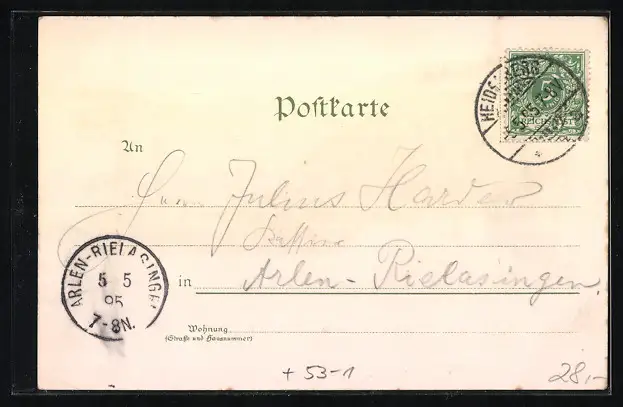 Postkarte
HEIDELBERG
REICHSPOST
An
Herrn Julius Harder
in Arlen-Rielasingen.
ARLEN-RIELASINGEN
5 5
95
7-8N.
Wohnung
(Straße und Hausnummer)
+ 53-1
28,-